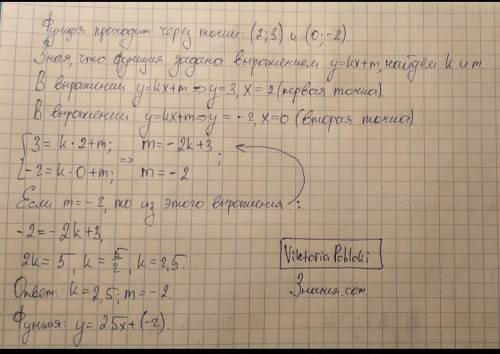 Функция проходит через точки: (2;3) и (0;-2)
Зная, что функция задана выражением y=kx+m, найдём k и m.
В выражении y=kx+m ⇒ y=3, x=2 (первая точка)
В выражении y=kx+m ⇒ y = -2, x=0 (вторая точка)
{3=k·2+m; m=-2k+3
-2=k·0+m; ⇒ m=-2 ;
Если m=-2, то из этого выражения:
-2=-2k+3,
2k=5, k=5/2, k=2,5.
Viktoria Pobloki
Ответ: k=2,5; m=-2.
Знания.com
Функция: y=2,5x+(-2).